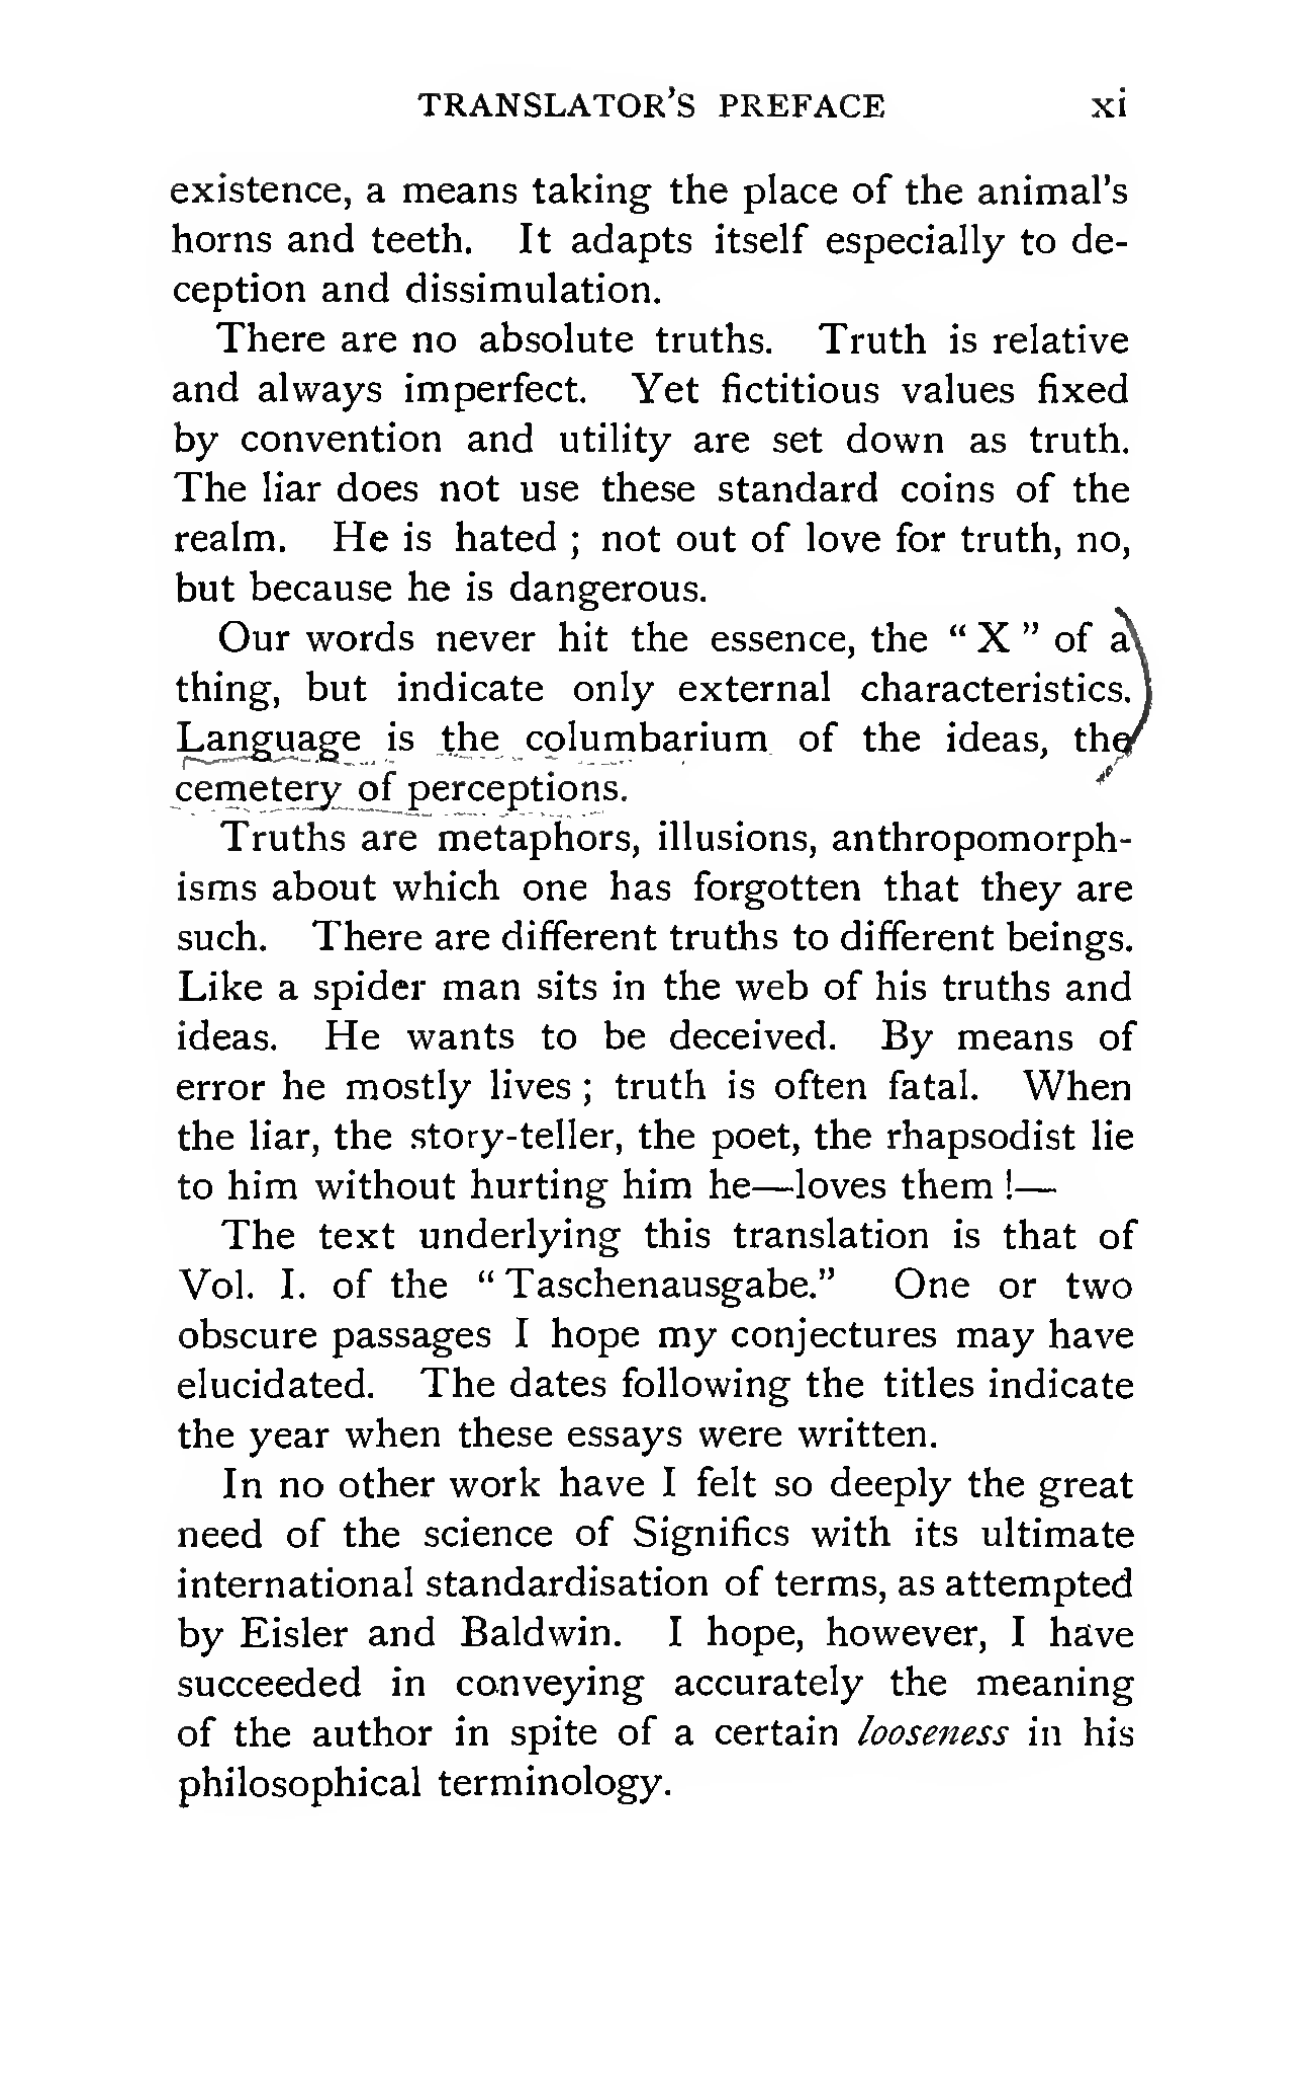 TRANSLATOR'S PREFACE xi
existence, a means taking the place of the animal's
horns and teeth. It adapts itself especially to de-
ception and dissimulation.
There are no absolute truths. Truth is relative
and always imperfect. Yet fictitious values fixed
by convention and utility are set down as truth.
The liar does not use these standard coins of the
realm. He is hated ; not out of love for truth, no,
but because he is dangerous.
Our words never hit the essence, the “ X ” of a
thing, but indicate only external characteristics.
Language is the columbarium of the ideas, the
cemetery of perceptions.
Truths are metaphors, illusions, anthropomorph-
isms about which one has forgotten that they are
such. There are different truths to different beings.
Like a spider man sits in the web of his truths and
ideas. He wants to be deceived. By means of
error he mostly lives ; truth is often fatal. When
the liar, the story-teller, the poet, the rhapsodist lie
to him without hurting him he—loves them !—
The text underlying this translation is that of
Vol. I. of the “ Taschenausgabe.” One or two
obscure passages I hope my conjectures may have
elucidated. The dates following the titles indicate
the year when these essays were written.
In no other work have I felt so deeply the great
need of the science of Significs with its ultimate
international standardisation of terms, as attempted
by Eisler and Baldwin. I hope, however, I have
succeeded in conveying accurately the meaning
of the author in spite of a certain looseness in his
philosophical terminology.